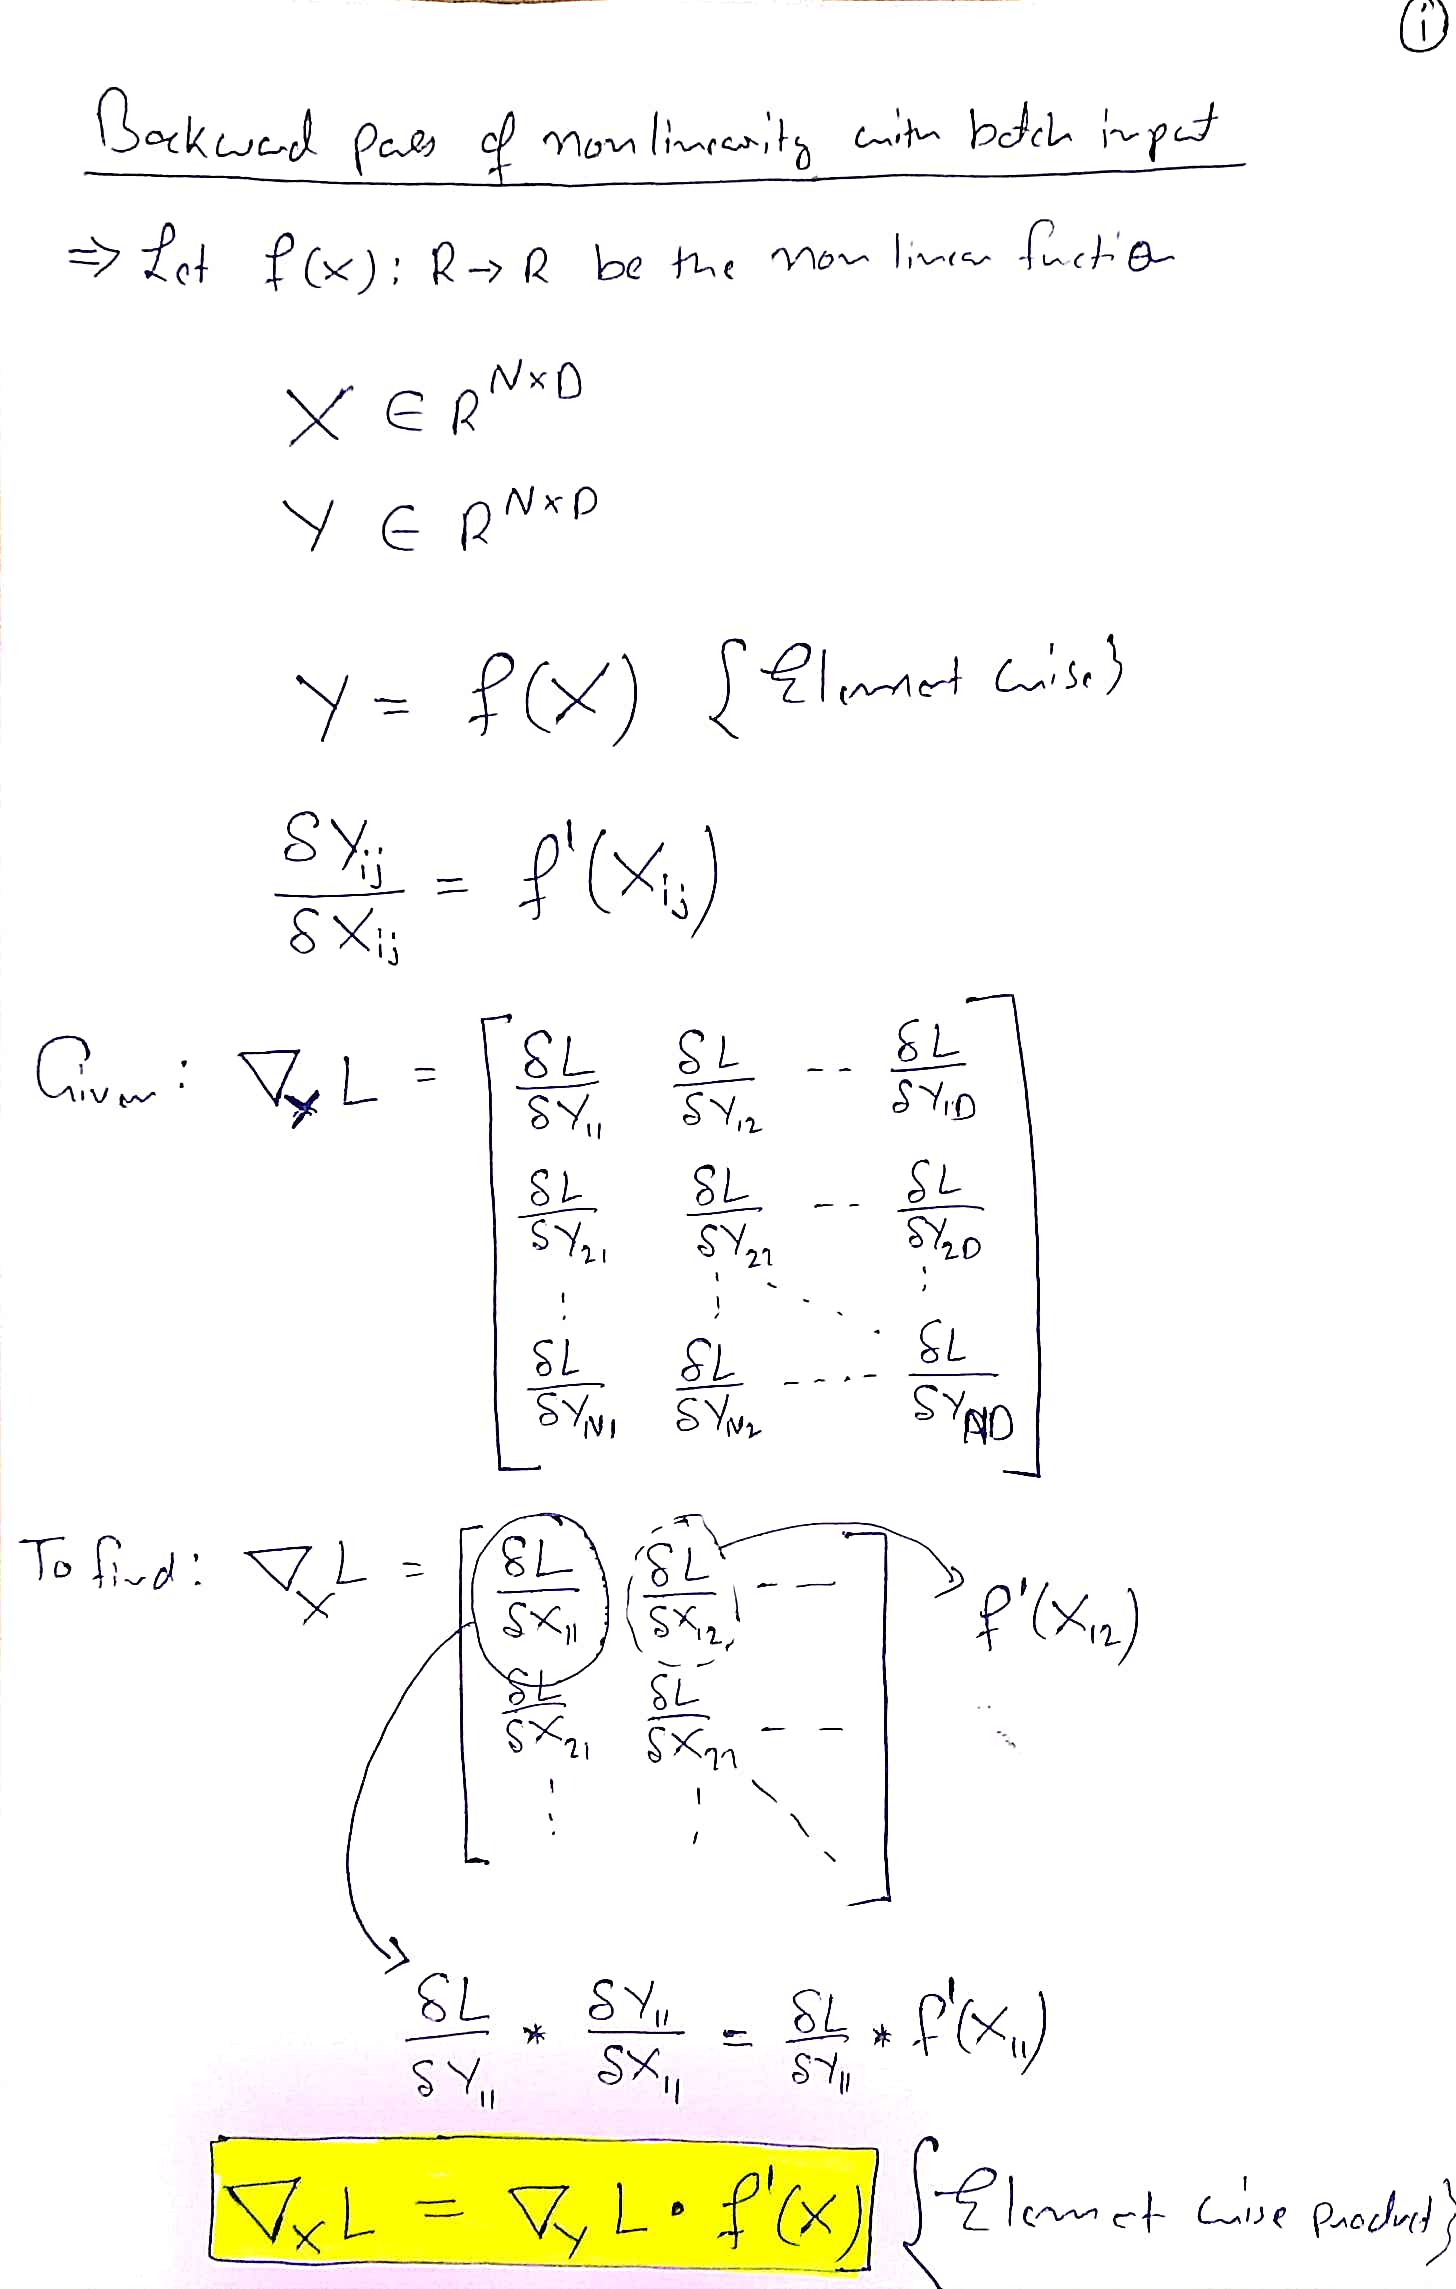 ①
Backward pass of nonlinearity with batch input
⇒ Let f(x): R→R be the non linear function
X ∈ R^{N×D}
Y ∈ R^{N×D}
Y = f(X) {Element wise}
δY_{ij} / δX_{ij} = f'(X_{ij})
Given: ∇_Y L = [ δL/δY_{11} δL/δY_{12} -- δL/δY_{1D}
δL/δY_{21} δL/δY_{22} -- δL/δY_{2D}
δL/δY_{N1} δL/δY_{N2} ---- δL/δY_{ND} ]
To find: ∇_X L = [ δL/δX_{11} δL/δX_{12} -- ] f'(X_{12})
δL/δX_{21} δL/δX_{22} --
δL/δY_{11} * δY_{11}/δX_{11} = δL/δY_{11} * f'(X_{11})
∇_X L = ∇_Y L • f'(X) {Element wise product}